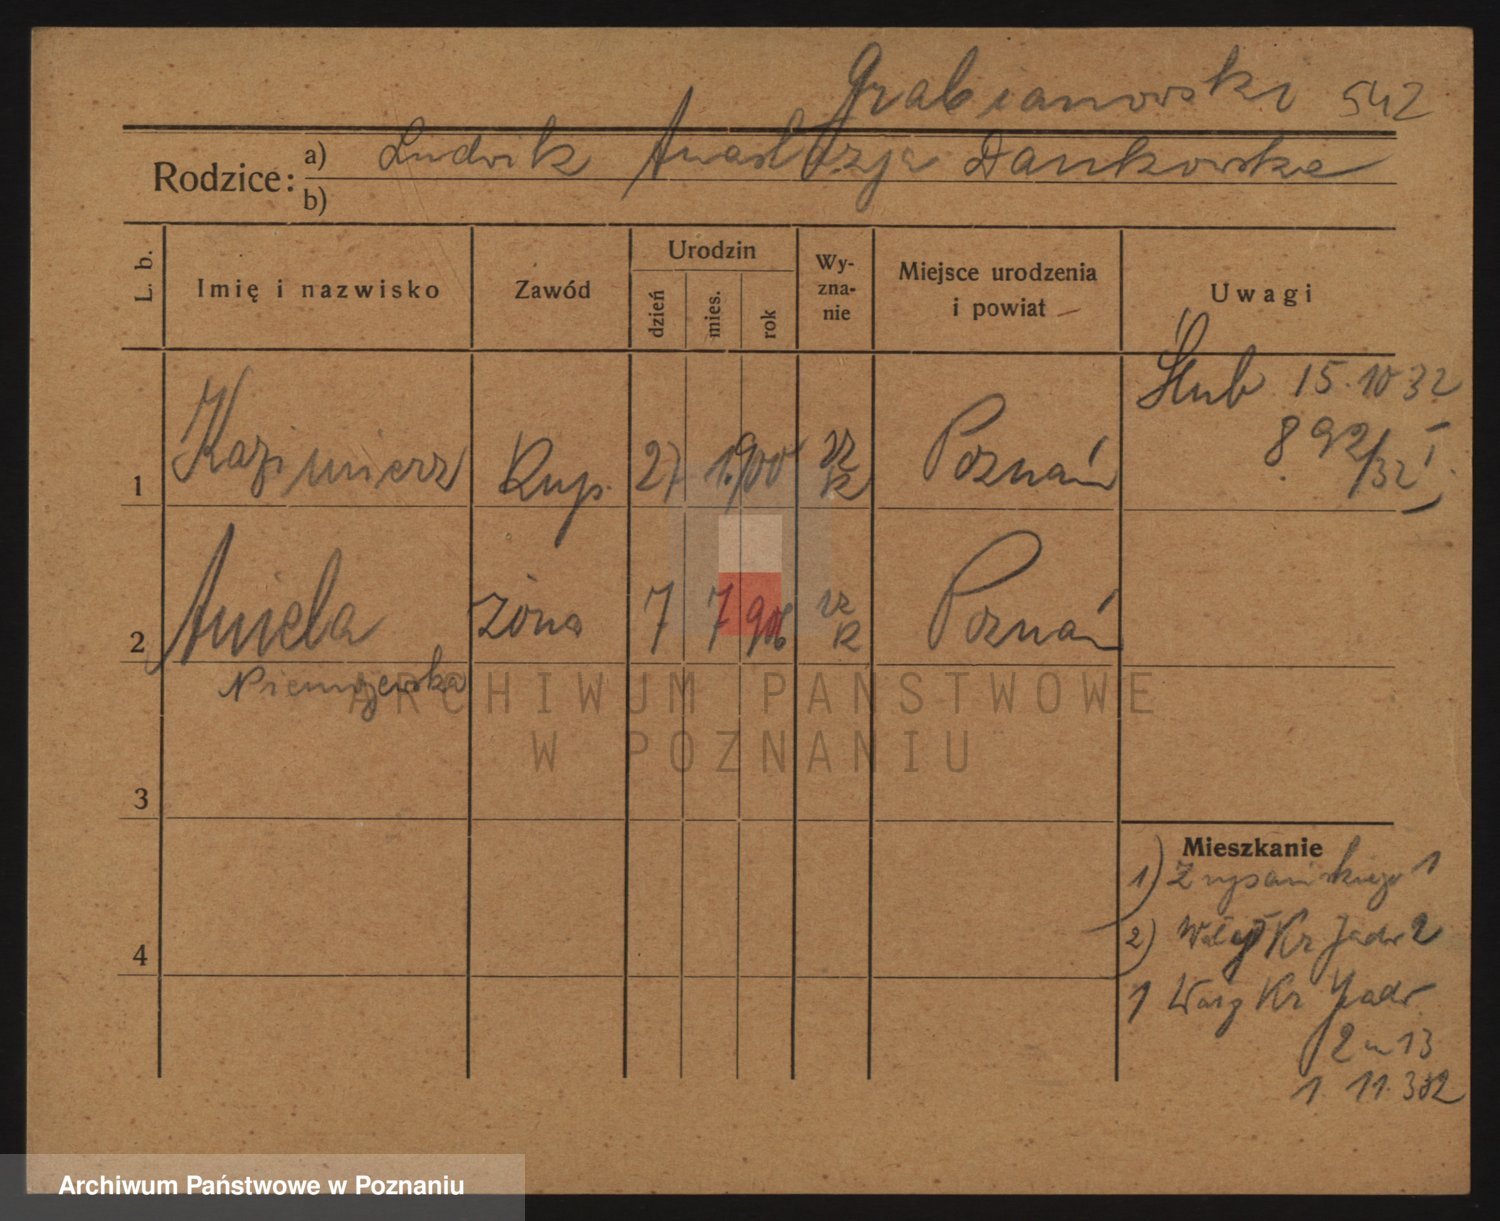 Grabianowski 542
Rodzice: a) Ludwik Anastazja Dankowska
b)
L. b.
Imię i nazwisko
Zawód
Urodzin
dzień
mies.
rok
Wy-
zna-
nie
Miejsce urodzenia
i powiat
Uwagi
1 Kazimierz Kup. 27 1. 900 rz k Poznań
Ślub 15.10 32
892/32 I
2 Aniela żona 7 7 906 rz k Poznań
ARCHIWUM PAŃSTWOWE
W POZNANIU
3
4
Mieszkanie
1) 1
2) Kr Jadw 2
1 Kr Jadw
2 m 13
1. 11. 32
Archiwum Państwowe w Poznaniu